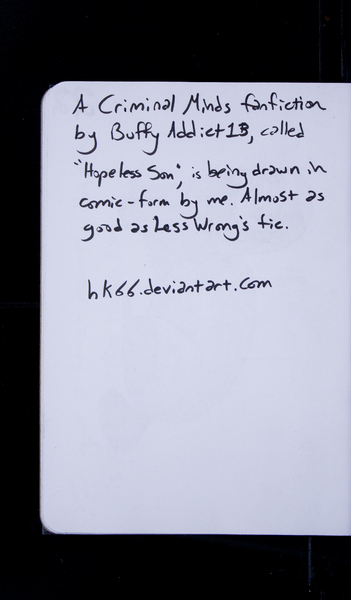 A Criminal Minds fanfiction
by Buffy Addict13, called
"Hopeless Son", is being drawn in
comic-form by me. Almost as
good as Less Wrong's fic.
hk66.deviantart.com